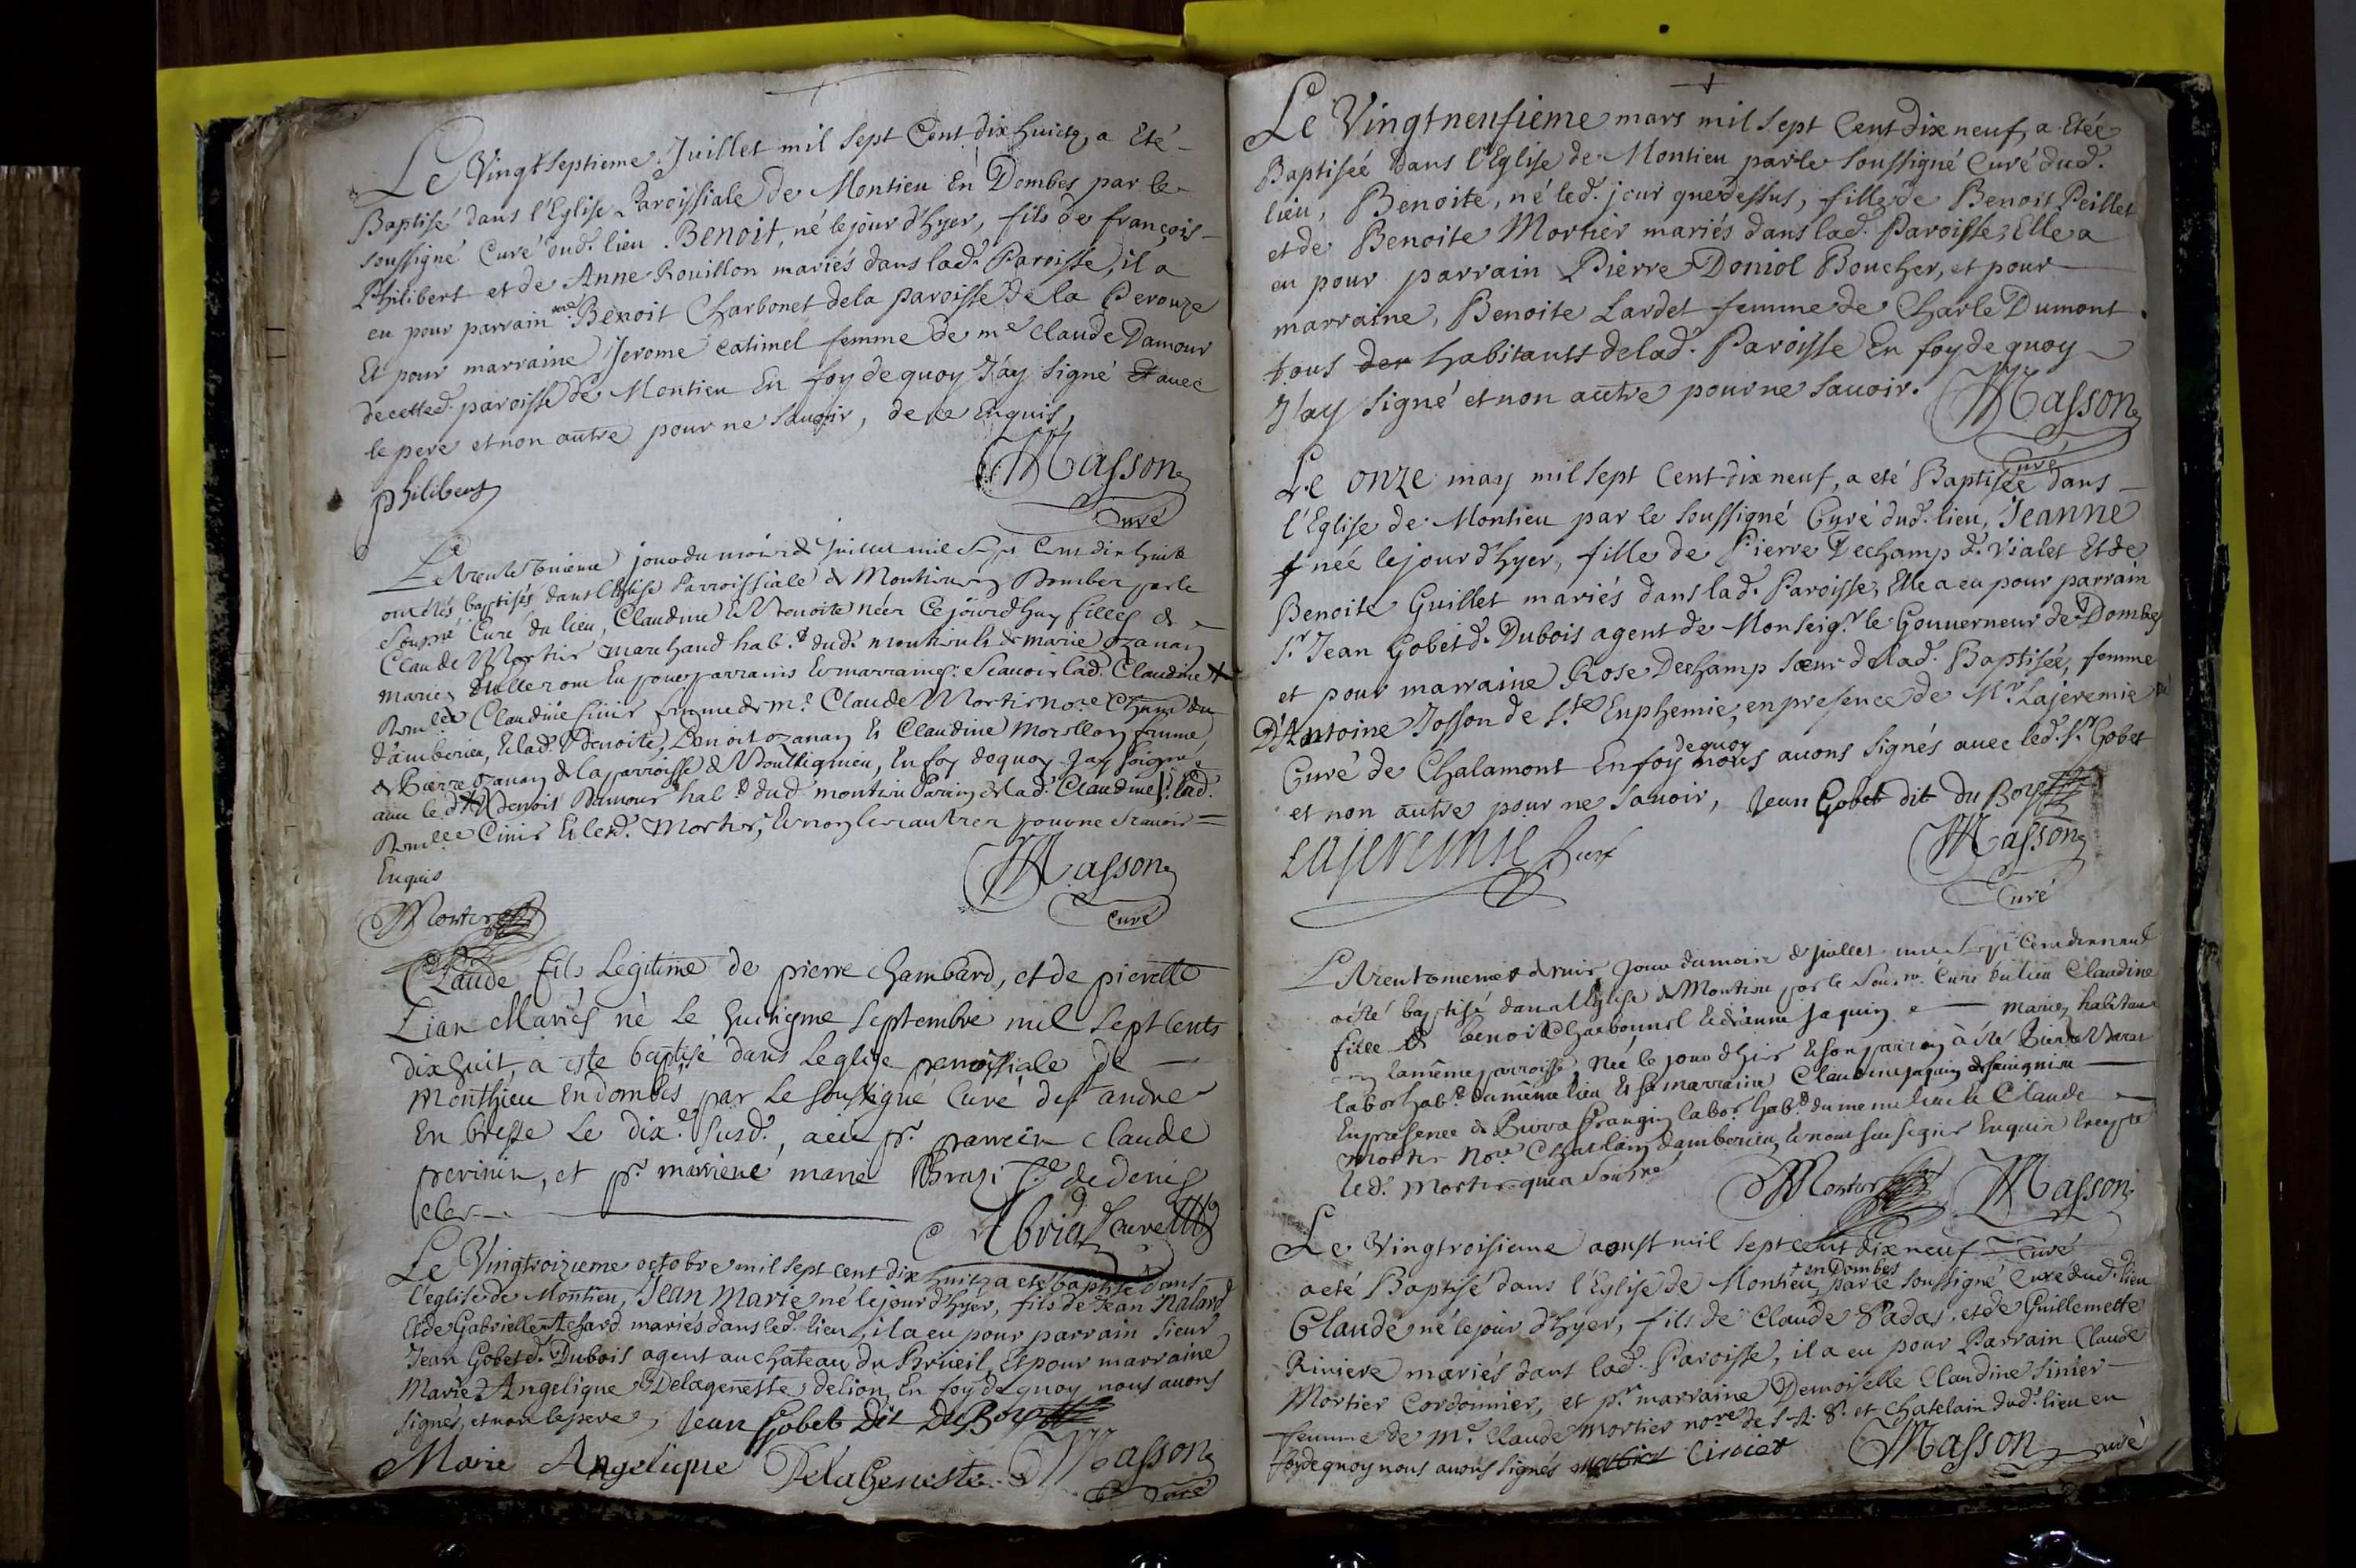 Le Vingt Septieme Juillet mil Sept Cent dix huict, a Eté
Baptisé dans l'Eglise Paroissiale de Montieu En Dombes par le
soussigné Curé dud. lieu Benoit, né le jour d'hyer, fils de françois
Philibert et de Anne Rouillon mariés dans lad. Paroisse, il a
eu pour parrain Benoit Charbonet de la paroisse de la Perouze
Et pour marraine Jerome Catimel femme de me Claude Damour
de cetted. paroisse de Montieu En foy de quoy J'ay signé avec
le pere et non autre pour ne Sauoir, de ce Enquis,
Philibert Masson
Curé
Le trente unieme jour du mois de juillet mil Sept Cens dix huict
ont étés baptisés dans l'Eglise Parroissiale de Montieu en Dombes par le
Soussigné Curé du lieu, Claudine Et Benoite néés Ce jourdhuy filles de
Claude Mortier marchand hab.t dud. montieu et de marie ozanan
mariés Et elles ont Eu pour parrains Et marraines Scauoir lad. Claudine
Claudine Cinier femme de m.e Claude Mortier no.re
d'amberieu, Et lad. Benoite, Benoit ozanan Et Claudine Morellon femme
de Pierre ozanan de la parroisse de En foy de quoy Jay Soigné
auec le d. Benoit Damour hab.t dud. montieu Parrin de lad. Claudine lad.
Cinier Et led. Mortier, Et non les autres pour ne Scauoir
Enquis
Masson
Mortier Curé
Claude fils Legitime de pierre Chambard, et de pierrette
Lian Mariés né Le huitieme Septembre mil Sept Cents
dix huit, a esté baptisé dans Leglise parroissiale de
Monthieu En dombes par Le Soussigné Curé de st andre
En bresse Le dix.e Susd., a eu pr. parrein Claude
previnin, et pr. marriene marie Brazi f.e de denis
Abrial Curé
Le Vingtroizieme octobre mil Sept cent dix huict, a eté baptisé dans
l'eglise de Montieu, Jean Marie né le jour d'hyer, fils de Jean Nalard
Et de Gabrielle Achard mariés dans led. lieu, il a eu pour parrain Sieur
Jean Gobet d. Dubois agent au chateau du Brueil, Et pour marraine
Marie Angelique Delageneste de lion, En foy de quoy nous auons
signés, et non le pere, Jean Gobet Dit Du Bois
Marie Angelique Delageneste Masson
Curé
Le Vingt neufieme mars mil Sept Cent dix neuf, a Etée
Baptiséé dans l'Eglise de Montieu par le Soussigné Curé dud.
lieu, Benoite, né led. jour que dessus, fille de Benoit Peillet
et de Benoite Mortier mariés dans lad. Paroisse, Elle a
eu pour parrain Pierre Doniol Boucher, et pour
marraine, Benoite Lardet femme de Charle Dumont.
tous der habitants de lad. Paroisse En foy de quoy
J'ay Signé et non autre pour ne Sauoir. Masson
Curé
Le onze may mil Sept Cent dix neuf, a eté Baptisée dans
l'Eglise de Montieu par le Soussigné Curé dud. lieu, Jeanne
née le jour d'hyer, fille de Pierre Dechamp d. Vialet Et de
Benoite Guillet mariés dans lad. Paroisse, Elle a eu pour parrain
Sr Jean Gobet d. Dubois agent de Monseigr le Gouuerneur de Dombes
et pour marraine Rose Dechamp Sœur de lad. Baptisée, femme
D'Antoine Josson de Ste Euphemie, en presence de Mr Lajeremie
Curé de Chalamont En foy de quoy nous auons Signés auec led. Sr Gobet
et non autre pour ne Sauoir, Jean Gobet dit du Bois
Lajeremie Curé Masson
Curé
jour du mois de juillet mil Sept Cens dix neuf
a été baptisé dans l'Eglise de Montieu par le Curé du lieu Claudine
fille de benoit Charbonnel Et d'anne Jaquin mariez habitans
en la même parroisse, Née le jour d'hier Et son parrain à été
labor hab.t du même lieu Et Sa marraine Claudine Jaquin
En présence de labor. hab.t du meme lieu Et Claude
Mortier No.re Chatelain d'amberieu, Enquis Excepté
led. Mortier qui a Signé Mortier Masson
Curé
Le Vingtroisieme aoust mil Sept cent dix neuf
a eté Baptisé dans l'Eglise de Montieu + en Dombes par le Soussigné Curé dud. lieu
Claude né le jour d'hyer, fils de Claude et de Guillemette
Riuiere mariés dans lad. Paroisse, il a eu pour Parrain Claude
Mortier Cordonnier, et pr. marraine Demoiselle Claudine Sinier
femme de Me Claude Mortier no.re de S. A. S. et Chatelain dud. lieu en
foy de quoy nous auons Signés Cinier Masson Curé